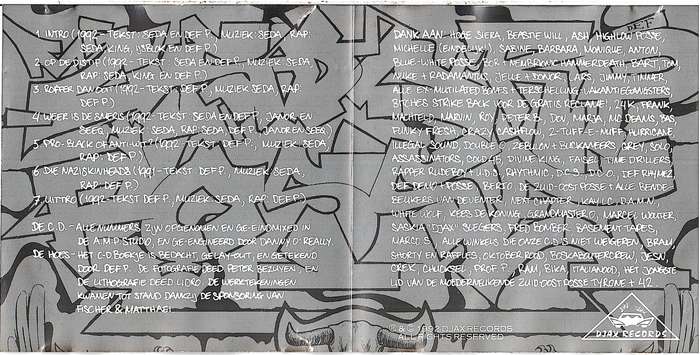 1 INTRO (1992 - TEKST: SEDA EN DEF P., MUZIEK: SEDA, RAP:
SEDA, KING, IJSBLOK EN DEF P.)
2 OP DE DISTIF (1992 - TEKST: SEDA EN DEF P., MUZIEK: SEDA,
RAP: SEDA, KING EN DEF P.)
3 ROPPER DAN OOIT (1992 - TEKST: DEF P., MUZIEK: SEDA, RAP:
DEF P.)
4 WEER IS DE SMERIS (1992 - TEKST: SEDA EN DEF P., JANOR EN
SEEQ, MUZIEK: SEDA, RAP: SEDA, DEF P., JANOR EN SEEQ)
5 PRO-BLACK OF ANTI-WIT? (1992 - TEKST: DEF P., MUZIEK: SEDA,
RAP: DEF P.)
6 DIE NAZI SKINHEADS (1991 - TEKST: DEF P., MUZIEK: SEDA,
RAP: DEF P.)
7 UITTRO (1992 - TEKST: DEF P., MUZIEK: SEDA, RAP: DEF P.)
DE C.D. - ALLE NUMMERS ZIJN OPGENOMEN EN GE-EINDMIXED IN
DE A.M.P. STUDIO, EN GE-ENGINEERD DOOR DANNY O'REALLY.
DE HOES - HET C.D. BOEKJE IS BEDACHT, GELAY-OUT, EN GETEKEND
DOOR DEF P. DE FOTOGRAFIE DEED PETER BEZUIJEN, EN
DE LITHOGRAFIE DEED LIDRO. DE WERKTEKENINGEN
KWAMEN TOT STAND DANKZIJ DE SPONSORING VAN
FISCHER & MATTHAEI
DEF
DANK AAN: HOGE SIERA, BEASTIE WILL, ASH, HIGH LOW POSSE,
MICHELLE (EINDELIJK!), SABINE, BARBARA, MONIQUE, ANTON,
BLUE-WHITE POSSE, HAMMERDEATH, BART, TOM,
MIKE + RADAMANTUS, JELLE + LARS, JIMMY, TIMMER,
ALLE EX-MUTILATED BONES, TERSCHELLING VAKANTIEGANGSTERS,
BITCHES STRIKE BACK VOOR DE GRATIS RECLAME!, 24K, FRANK,
MACHTELD, MARVIN, ROY, PETER B., DON, MARJA, MC DEANS, BAS,
FUNKY FRESH, CRAZY CASHFLOW, 2-TUFF-E-NUFF, HURRICANE,
ILLEGAL SOUND, DOUBLE O, ZEBULON + BUCKANEERS, GREY, SOLO,
ASSASSINATORS, COLD 45, DIVINE KING, FASEL, TIME DRILLERS,
RAPPER RUDEBOY + U.D.S., RHYTHMIC, D.C.S., D.C.O., DEF RHYMEZ,
DEF DEMO + POSSE, DE ZUID-OOST POSSE + ALLE BENDE-
BEUKERS VAN DEVENTER, NEXT CHAPTER, D.A.M.N.,
WHITE WOLF, KEES DE KONING, GRANDMASTER D, MARCEL WOUTER,
SASKIA, DJAX' SLEGERS, FRED BOMBER, BASEMENT TAPES,
MARCO S., ALLE WINKELS DIE ONZE C.D.'S NIET WEIGEREN, BRAM,
SHORTY EN RAFFLES, OKTOBER ROOD, JESN,
CREK, CHUCKSEL, PROF P., RAM, BIKA, ITALIANOOD, HET JONGSTE
LID VAN DE ZUID-OOST POSSE TYRONE + 42
℗ & © 1992 DJAX RECORDS
ALL RIGHTS RESERVED
DJAX RECORDS